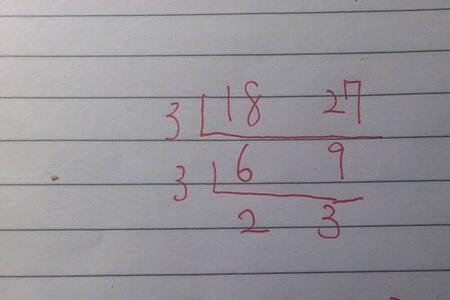 3 18 27
3 6 9
2 3